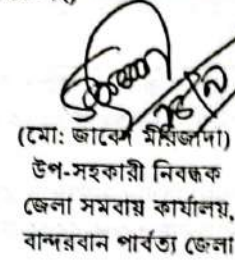 (মো: জাবেদ মীরজাদা)
উপ-সহকারী নিবন্ধক
জেলা সমবায় কার্যালয়,
বান্দরবান পার্বত্য জেলা